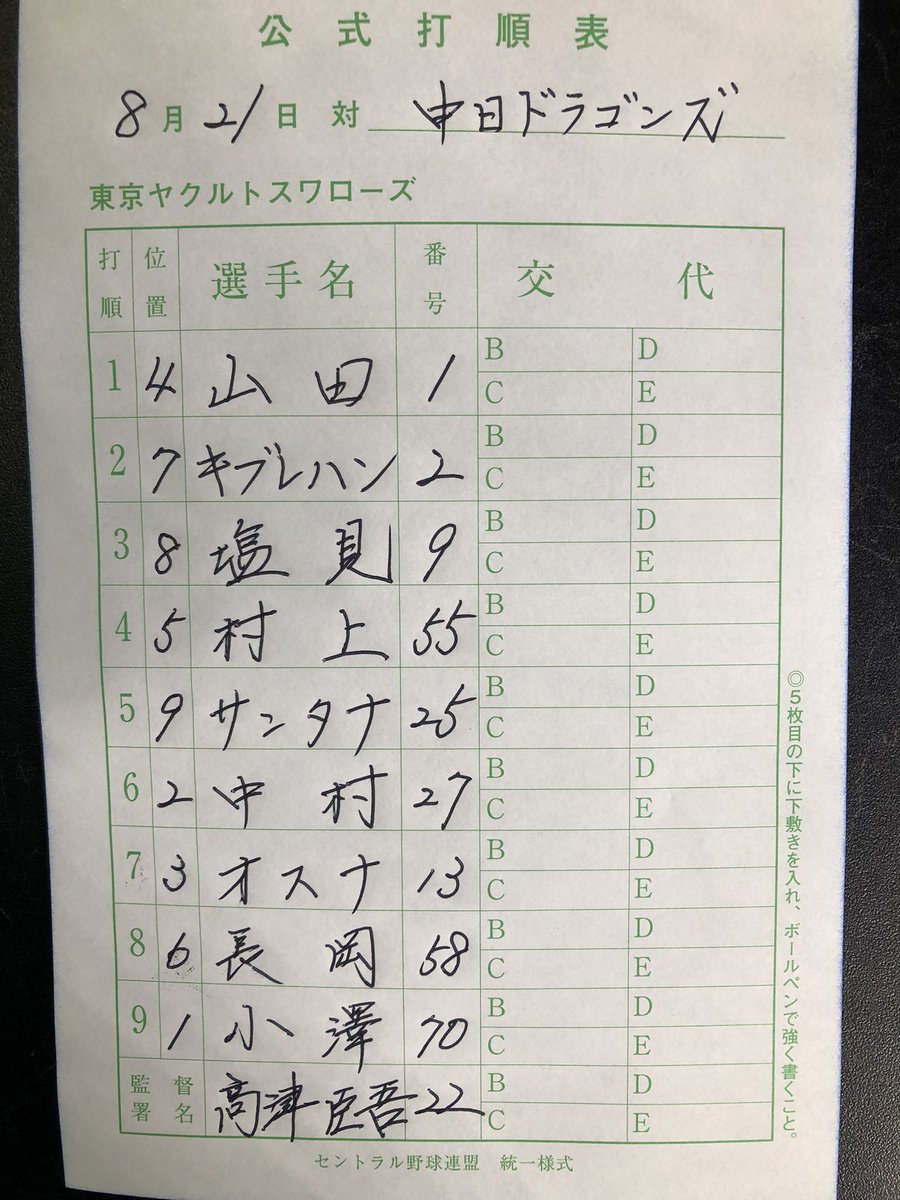 公式打順表
8月21日 対 中日ドラゴンズ
東京ヤクルトスワローズ
打順 位置 選手名 番号 交代
1 4 山田 1 B D C E
2 7 キブレハン 2 B D C E
3 8 塩見 9 B D C E
4 5 村上 55 B D C E
5 9 サンタナ 25 B D C E
6 2 中村 27 B D C E
7 3 オスナ 13 B D C E
8 6 長岡 58 B D C E
9 1 小澤 70 B D C E
監督署名 高津臣吾 22 B D C E
◎5枚目の下に下敷きを入れ、ボールペンで強く書くこと。
セントラル野球連盟 統一様式